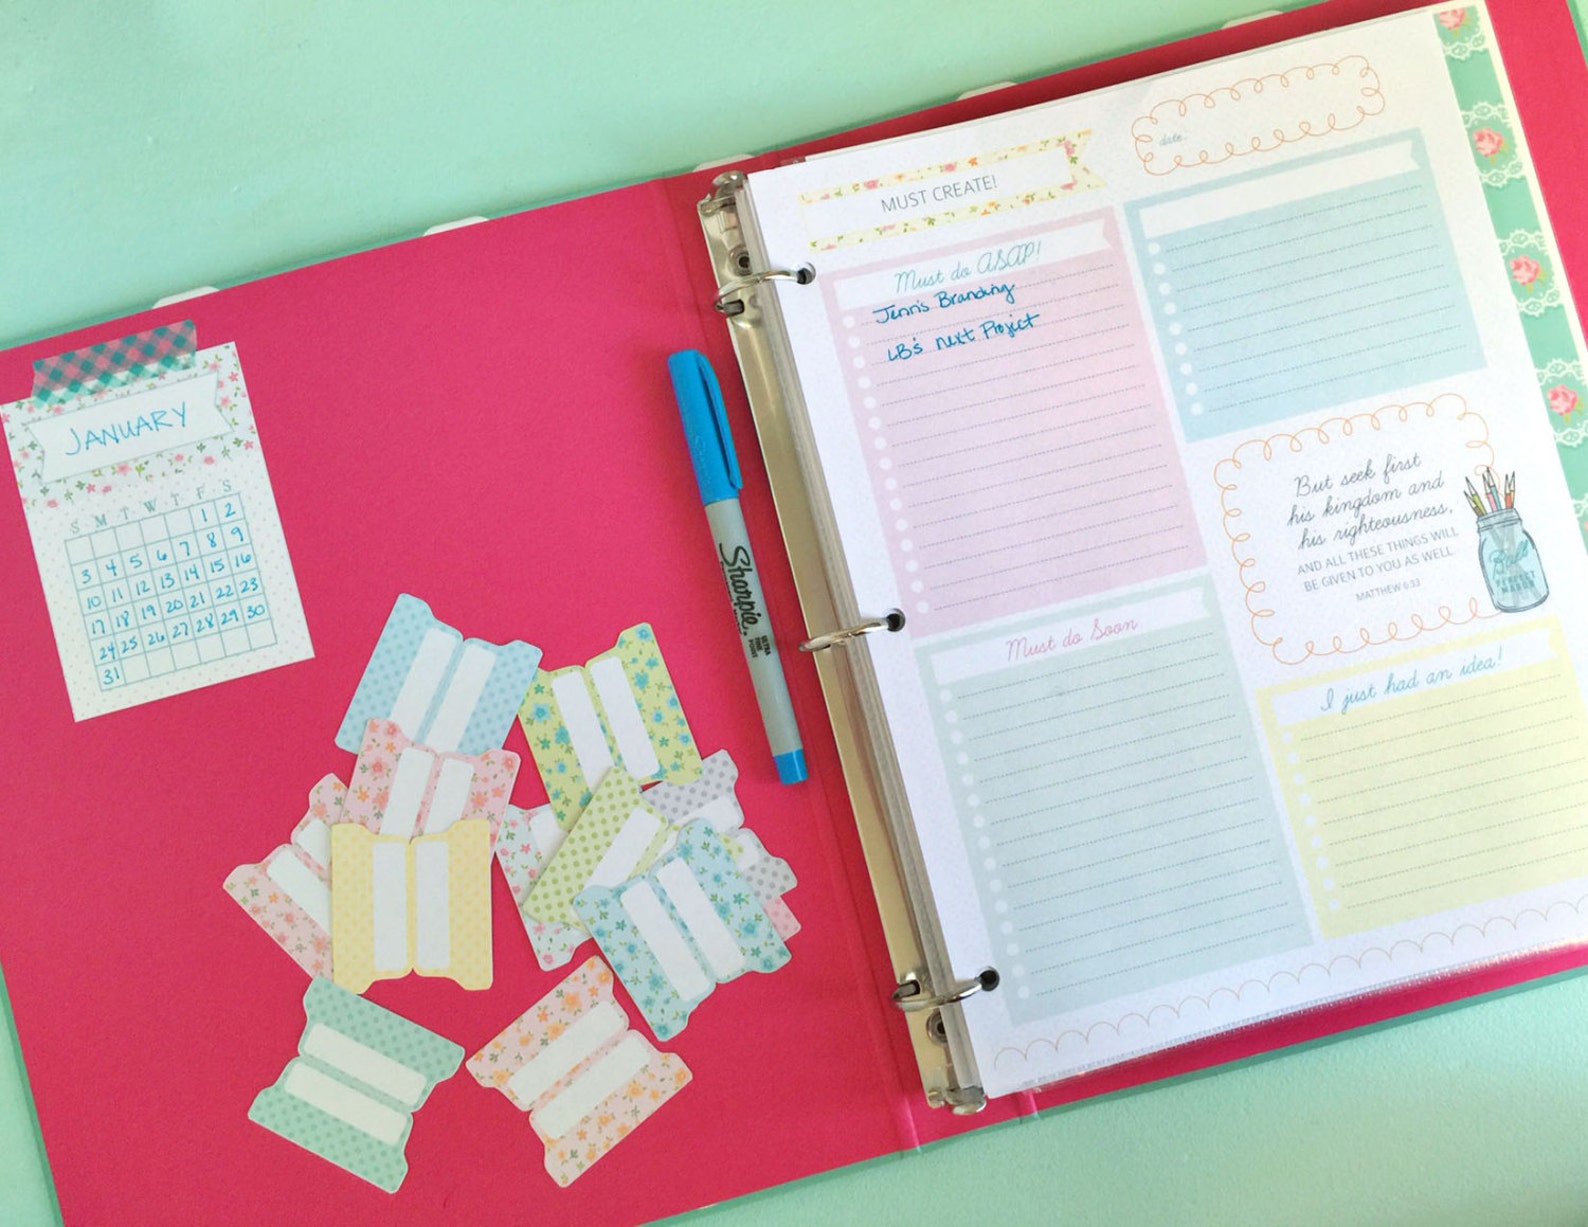 JANUARY
S M T W T F S
1 2
3 4 5 6 7 8 9
10 11 12 13 14 15 16
17 18 19 20 21 22 23
24 25 26 27 28 29 30
31
Sharpie
ULTRA
FINE
POINT
MUST CREATE!
date:
Must do ASAP!
Jenn's Branding
LB's next Project
Must do Soon
But seek first
his kingdom and
his righteousness,
AND ALL THESE THINGS WILL
BE GIVEN TO YOU AS WELL.
MATTHEW 6:33
Ball
PERFECT
MASON
I just had an idea!